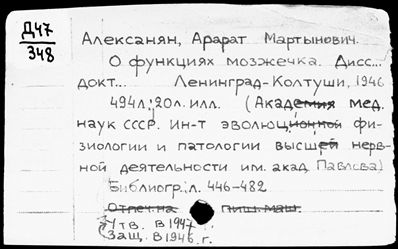 Д47
348
Алексанян, Арарат Мартынович.
О функциях мозжечка. Дисс...
докт... Ленинград-Колтуши, 1946
494л; 20л. илл. (Академия мед.
наук СССР. Ин-т эволюционной фи-
зиологии и патологии высшей нерв-
ной деятельности им. акад. Павлова)
Библиогр: л. 446-482
Отпеч. на пиш. маш.
Утв. в 1947 г.
Защ. в 1946 г.